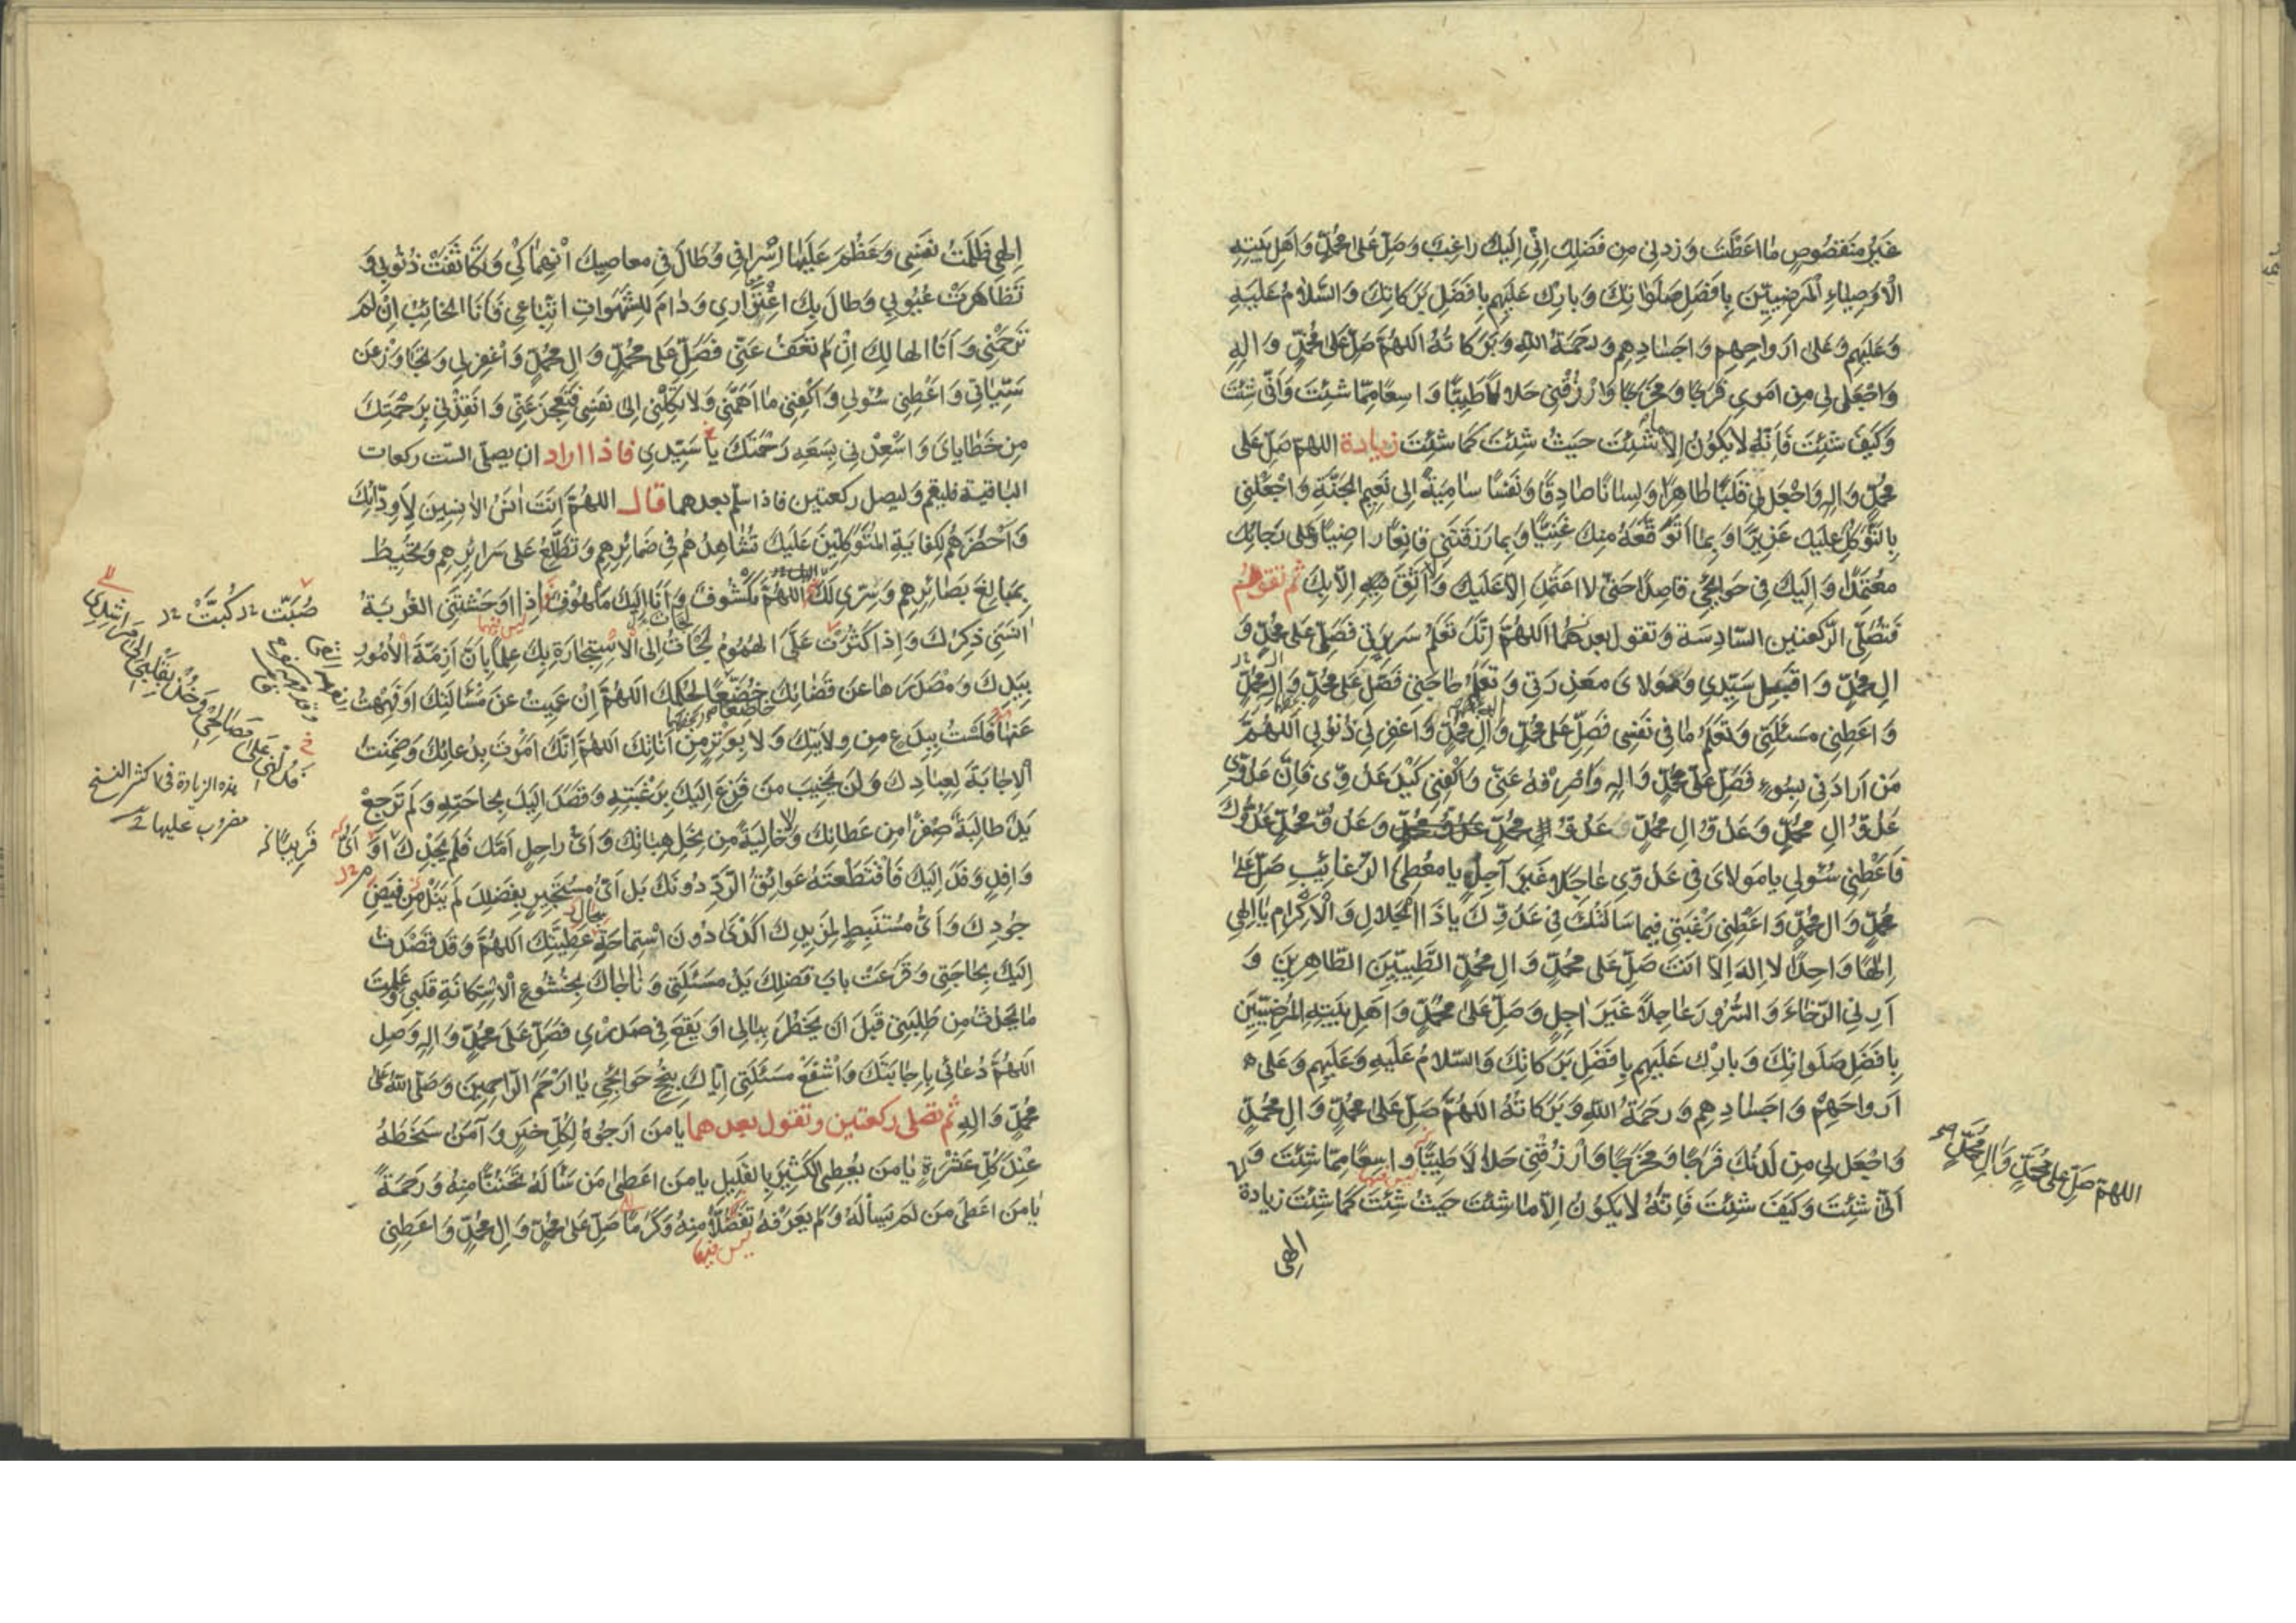 غَيْرُ مَنْقُصُوصٍ مٰا اَعْطَيْتَ وَزِدْنِي مِنْ فَضْلِكَ اِنِّي اِلَيْكَ رٰاغِبٌ وَصَلِّ عَلىٰ مُحَمَّدٍ وَاَهْلِ بَيْتِهِ
الْاَوْصِيٰاءِ الْمَرْضِيِّينَ بِاَفْضَلِ صَلَوٰاتِكَ وَبٰارِكْ عَلَيْهِمْ بِاَفْضَلِ بَرَكٰاتِكَ وَالسَّلٰامُ عَلَيْهِ
وَعَلَيْهِمْ وَعَلىٰ اَرْوٰاحِهِمْ وَاَجْسٰادِهِمْ وَرَحْمَةُ اللهِ وَبَرَكٰاتُهُ اَللّهُمَّ صَلِّ عَلىٰ مُحَمَّدٍ وَاٰلِهِ
وَاجْعَلْ لِي مِنْ اَمْرِي فَرَجًا وَمَخْرَجًا وَارْزُقْنِي حَلٰالًا طَيِّبًا وَاسِعًا مِمّٰا شِئْتَ وَاَنّٰى شِئْتَ
وَكَيْفَ شِئْتَ فَاِنَّهُ لٰا يَكُونُ اِلّٰا مٰا شِئْتَ حَيْثُ شِئْتَ كَمٰا شِئْتَ زيادة اللهمّ صَلِّ عَلىٰ
مُحَمَّدٍ وَاٰلِهِ وَاجْعَلْ لِي قَلْبًا طٰاهِرًا وَلِسٰانًا صٰادِقًا وَنَفْسًا سٰامِيَةً اِلىٰ نَعِيمِ الْجَنَّةِ وَاجْعَلْنِي
بِالتَّوَكُّلِ عَلَيْكَ عَزِيزًا وَبِمٰا اَتَوَقَّعُهُ مِنْكَ غَنِيًّا وَبِمٰا رَزَقْتَنِي قٰانِعًا رٰاضِيًا وَعَلىٰ رَجٰائِكَ
مُعْتَمِدًا وَاِلَيْكَ فِي حَوٰائِجِي قٰاصِدًا حَتّىٰ لٰا اَعْتَمِدَ اِلّٰا عَلَيْكَ وَلٰا اَثِقَ فِيهِ اِلّٰا بِكَ ثم تقوم
فَتُصَلِّي الرّكعتين السّادسة وتقول بعدهما اَللّهُمَّ اِنَّكَ تَعْلَمُ سَرِيرَتِي فَصَلِّ عَلىٰ مُحَمَّدٍ وَ
اٰلِ مُحَمَّدٍ وَاقْبَلْ سَيِّدِي وَمَوْلٰايَ مَعْذِرَتِي وَتَعْلَمُ حٰاجَتِي فَصَلِّ عَلىٰ مُحَمَّدٍ وَاٰلِ مُحَمَّدٍ
وَاَعْطِنِي مَسْئَلَتِي وَتَعْلَمُ مٰا فِي نَفْسِي فَصَلِّ عَلىٰ مُحَمَّدٍ وَاٰلِ مُحَمَّدٍ وَاغْفِرْ لِي ذُنُوبِي اَللّهُمَّ
مَنْ اَرٰادَنِي بِسُوءٍ فَصَلِّ عَلىٰ مُحَمَّدٍ وَاٰلِهِ وَاصْرِفْهُ عَنِّي وَاكْفِنِي كَيْدَ عَدُوِّي فَاِنَّ عَدُوِّي
عَدُوُّ اٰلِ مُحَمَّدٍ وَعَدُوُّ اٰلِ مُحَمَّدٍ عَدُوُّ مُحَمَّدٍ وَعَدُوُّ مُحَمَّدٍ عَدُوُّكَ
فَاَعْطِنِي سُئْولِي يٰا مَوْلٰايَ فِي عَدُوِّي عٰاجِلًا غَيْرَ آجِلٍ يٰا مُعْطِيَ الرَّغٰائِبِ صَلِّ عَلىٰ
مُحَمَّدٍ وَاٰلِ مُحَمَّدٍ وَاَعْطِنِي رَغْبَتِي فِيمٰا سَاَلْتُكَ فِي عَدُوِّكَ يٰا ذَا الْجَلٰالِ وَالْاِكْرٰامِ يٰا اِلٰهِي
اِلٰهًا وٰاحِدًا لٰا اِلٰهَ اِلّٰا اَنْتَ صَلِّ عَلىٰ مُحَمَّدٍ وَاٰلِ مُحَمَّدٍ الطَّيِّبِينَ الطّٰاهِرِينَ وَ
اَرِنِي الرَّخٰاءَ وَالسُّرُورَ عٰاجِلًا غَيْرَ اٰجِلٍ وَصَلِّ عَلىٰ مُحَمَّدٍ وَاَهْلِ بَيْتِهِ الْمَرْضِيِّينَ
بِاَفْضَلِ صَلَوٰاتِكَ وَبٰارِكْ عَلَيْهِمْ بِاَفْضَلِ بَرَكٰاتِكَ وَالسَّلٰامُ عَلَيْهِ وَعَلَيْهِمْ وَعَلىٰ
اَرْوٰاحِهِمْ وَاَجْسٰادِهِمْ وَرَحْمَةُ اللهِ وَبَرَكٰاتُهُ اَللّهُمَّ صَلِّ عَلىٰ مُحَمَّدٍ وَاٰلِ مُحَمَّدٍ
وَاجْعَلْ لِي مِنْ لَدُنْكَ فَرَجًا وَمَخْرَجًا وَارْزُقْنِي حَلٰالًا طَيِّبًا وٰاسِعًا مِمّٰا شِئْتَ وَ
اَنّٰى شِئْتَ وَكَيْفَ شِئْتَ فَاِنَّهُ لٰا يَكُونُ اِلّٰا مٰا شِئْتَ حَيْثُ شِئْتَ كَمٰا شِئْتَ زيادة
اِلٰهِي
اللهمّ صَلِّ عَلىٰ مُحَمَّدٍ وَاٰلِ مُحَمَّدٍ صح
اِلٰهِي ظَلَمْتُ نَفْسِي وَعَظُمَ عَلَيْهٰا اِسْرٰافِي وَطٰالَ فِي مَعٰاصِيكَ انْهِمٰاكِي وَتَكٰاثَفَتْ ذُنُوبِي وَ
تَظٰاهَرَتْ عُيُوبِي وَطٰالَ بِكَ اغْتِرٰارِي وَدٰامَ لِلشَّهَوٰاتِ اتِّبٰاعِي فَاَنَا الْخٰائِبُ اِنْ لَمْ
تَرْحَمْنِي وَاَنَا الْهٰالِكُ اِنْ لَمْ تَعْفُ عَنِّي فَصَلِّ عَلىٰ مُحَمَّدٍ وَاٰلِ مُحَمَّدٍ وَاغْفِرْ لِي وَتَجٰاوَزْ عَنْ
سَيِّئٰاتِي وَاَعْطِنِي سُئْولِي وَاكْفِنِي مٰا اَهَمَّنِي وَلٰا تَكِلْنِي اِلىٰ نَفْسِي فَتَعْجِزَ عَنِّي وَاَنْقِذْنِي بِرَحْمَتِكَ
مِنْ خَطٰايٰايَ وَاَسْعِدْنِي بِسَعَةِ رَحْمَتِكَ يٰا سَيِّدِي فاذا اراد ان يصلّى الست ركعات
الباقية فليقم وليصل ركعتين فاذا سلّم بعدهما قال اللهُمَّ اَنْتَ اٰنَسُ الْاٰنِسِينَ لِاَوِدّٰائِكَ
وَاَحْضَرُهُمْ لِكِفٰايَةِ الْمُتَوَكِّلِينَ عَلَيْكَ تُشٰاهِدُهُمْ فِي ضَمٰائِرِهِمْ وَتَطَّلِعُ عَلىٰ سَرٰائِرِهِمْ وَتُحِيطُ
بِمَبٰالِغِ بَصٰائِرِهِمْ وَسِرِّي لَكَ اللهُمَّ مَكْشُوفٌ وَاَنَا اِلَيْكَ مَلْهُوفٌ اِذٰا اَوْحَشَتْنِي الْغُرْبَةُ
اٰنَسَنِي ذِكْرُكَ وَاِذٰا كَثُرَتْ عَلَيَّ الْهُمُومُ لَجَأْتُ اِلَى الْاِسْتِجٰارَةِ بِكَ عِلْمًا بِاَنَّ اَزِمَّةَ الْاُمُورِ
بِيَدِكَ وَمَصْدَرَهٰا عَنْ قَضٰائِكَ خُضَّعًا لِحُكْمِكَ اللهُمَّ اِنْ عَمِيتُ عَنْ مَسْأَلَتِكَ اَوْ فَهِهْتُ
عَنْهٰا فَلَسْتُ بِبِدْعٍ مِنْ وِلٰايَتِكَ وَلٰا بِوَتْرٍ مِنْ اَنٰاتِكَ اَللّهُمَّ اِنَّكَ اَمَرْتَ بِدُعٰائِكَ وَضَمِنْتَ
الْاِجٰابَةَ لِعِبٰادِكَ وَلَنْ يَخِيبَ مَنْ فَزِعَ اِلَيْكَ بِرَغْبَتِهِ وَقَصَدَ اِلَيْكَ بِحٰاجَتِهِ وَلَمْ تَرْجِعْ
يَدٌ طٰالِبَةٌ صِفْرًا مِنْ عَطٰائِكَ وَلٰا خٰالِيَةً مِنْ نِحَلِ هِبٰاتِكَ وَاَيُّ رٰاحِلٍ اَمَّكَ فَلَمْ يَجِدْكَ اَوْ اَيُّ
وٰافِدٍ وَفَدَ اِلَيْكَ فَاقْتَطَعَتْهُ عَوٰائِقُ الرَّدِّ دُونَكَ بَلْ اَيُّ مُسْتَجِيرٍ بِفَضْلِكَ لَمْ يَنَلْ مِنْ فَيْضِ
جُودِكَ وَاَيُّ مُسْتَنْبِطٍ لِمَزِيدِكَ اَكْدىٰ دُونَ اسْتِمٰاحَةِ عَطِيَّتِكَ اَللّهُمَّ وَقَدْ قَصَدْتُ
اِلَيْكَ بِحٰاجَتِي وَقَرَعَتْ بٰابَ فَضْلِكَ يَدُ مَسْئَلَتِي وَنٰاجٰاكَ بِخُشُوعِ الْاِسْتِكٰانَةِ قَلْبِي وَعَلِمْتَ
مٰا يَحْدُثُ مِنْ طَلِبَتِي قَبْلَ اَنْ يَخْطُرَ بِبٰالِي اَوْ يَقَعَ فِي صَدْرِي فَصَلِّ عَلىٰ مُحَمَّدٍ وَاٰلِهِ وَصِلِ
اَللّهُمَّ دُعٰائِي بِاِجٰابَتِكَ وَاشْفَعْ مَسْئَلَتِي اِيّٰاكَ بِنُجْحِ حَوٰائِجِي يٰا اَرْحَمَ الرّٰاحِمِينَ وَصَلَّى اللهُ عَلىٰ
مُحَمَّدٍ وَاٰلِهِ ثم تصلى ركعتين وتقول بعدهما يٰا مَنْ اَرْجُوهُ لِكُلِّ خَيْرٍ وَآمَنُ سَخَطَهُ
عِنْدَ كُلِّ عَثْرَةٍ يٰا مَنْ يُعْطِي الْكَثِيرَ بِالْقَلِيلِ يٰا مَنْ اَعْطىٰ مَنْ سَأَلَهُ تَحَنُّنًا مِنْهُ وَرَحْمَةً
يٰا مَنْ اَعْطىٰ مَنْ لَمْ يَسْأَلْهُ وَلَمْ يَعْرِفْهُ تَفَضُّلًا مِنْهُ وَكَرَمًا صَلِّ عَلىٰ مُحَمَّدٍ وَاٰلِ مُحَمَّدٍ وَاَعْطِنِي
ليس فيها
صُبَّتْ كُبَّتْ
فَدُلَّنِي عَلىٰ مَصٰالِحِي وَخُذْ بِقَلْبِي اِلىٰ مَرٰاشِدِي
هذه الزيادة في اكثر النسخ
مضروب عليها
قَرِيبًا